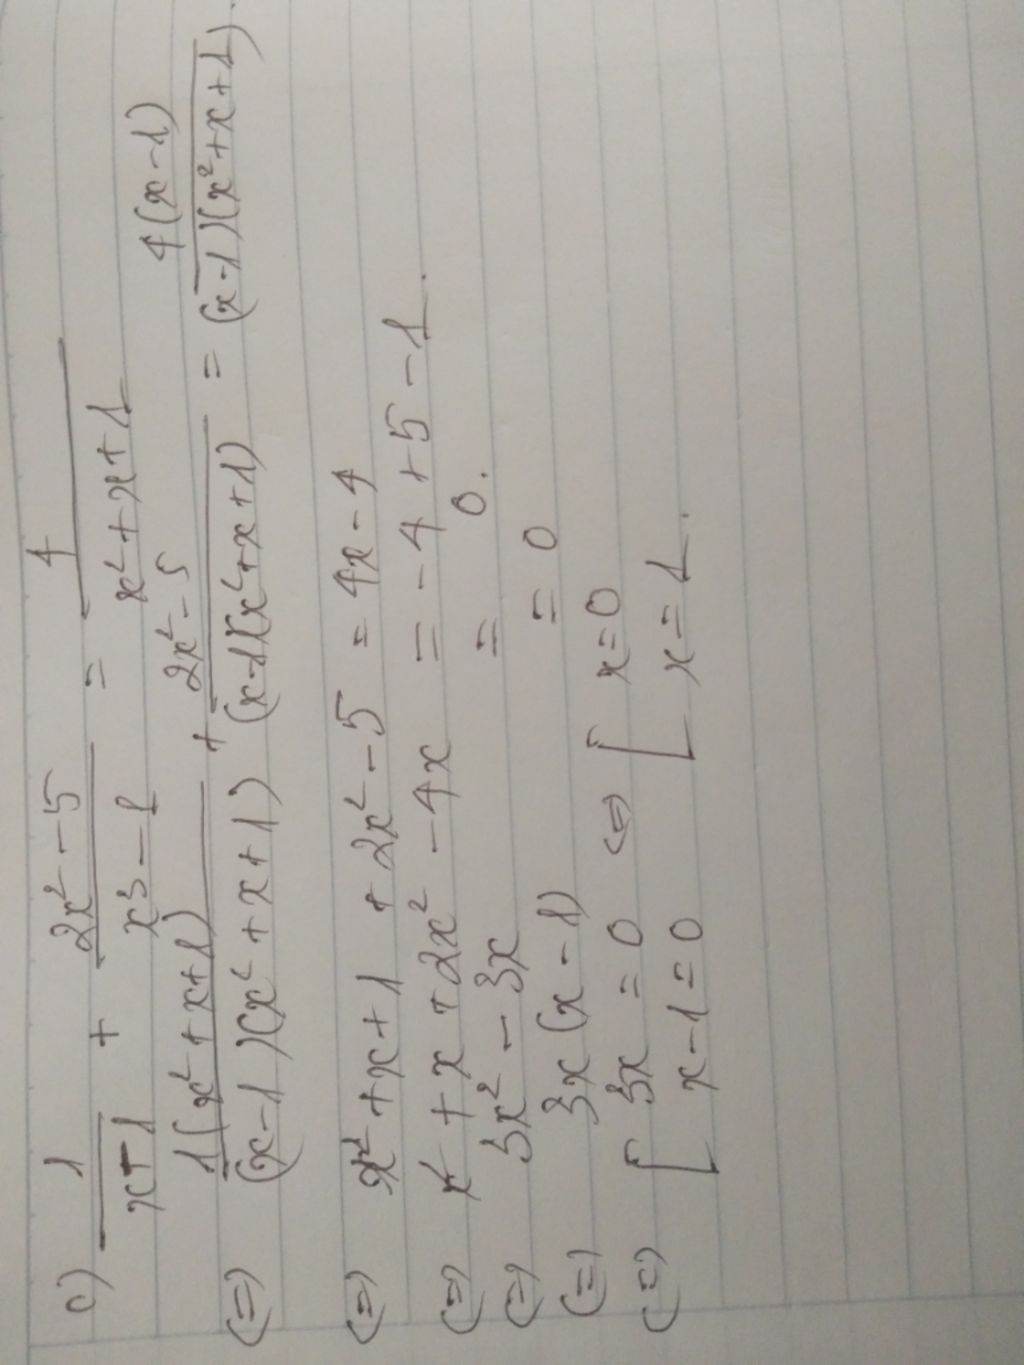 c) 1/(x-1) + (2x² - 5)/(x³ - 1) = 4/(x² + x + 1)
(=) 1(x² + x + 1)/((x - 1)(x² + x + 1)) + (2x² - 5)/((x - 1)(x² + x + 1)) = 4(x - 1)/((x - 1)(x² + x + 1)).
(=) x² + x + 1 + 2x² - 5 = 4x - 4
(=) x² + x + 2x² - 4x = -4 + 5 - 1.
(=) 3x² - 3x = 0.
(=) 3x(x - 1) = 0
(=) [ 3x = 0 (=) [ x = 0
x - 1 = 0 x = 1.